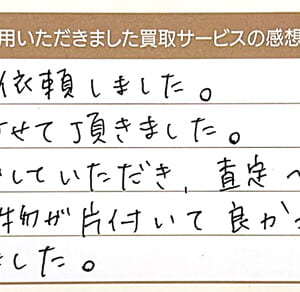 用いただきました買取サービスの感想
依頼しました。
せて頂きました。
していただき、査定へ
物が片付いて良かっ
した。